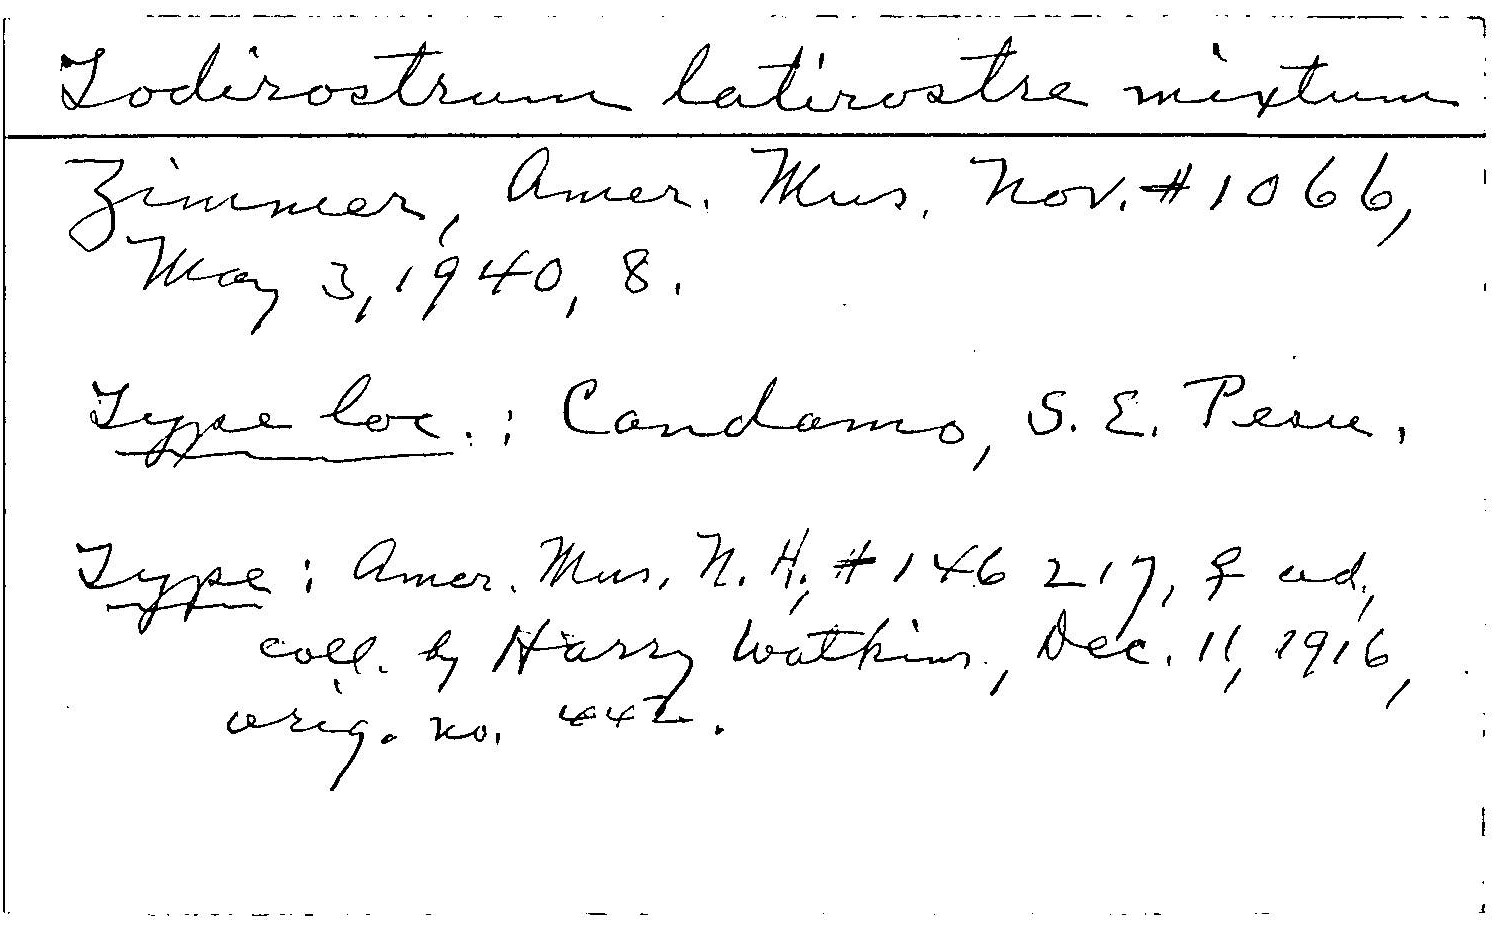 Todirostrum latirostre mixtum
Zimmer, Amer. Mus. Nov. #1066,
May 3, 1940, 8.
Type loc.: Candamo, S. E. Peru.
Type: Amer. Mus. N. H. #146 217, ♀ ad.,
coll. by Harry Watkins, Dec. 11, 1916,
orig. no. 442.